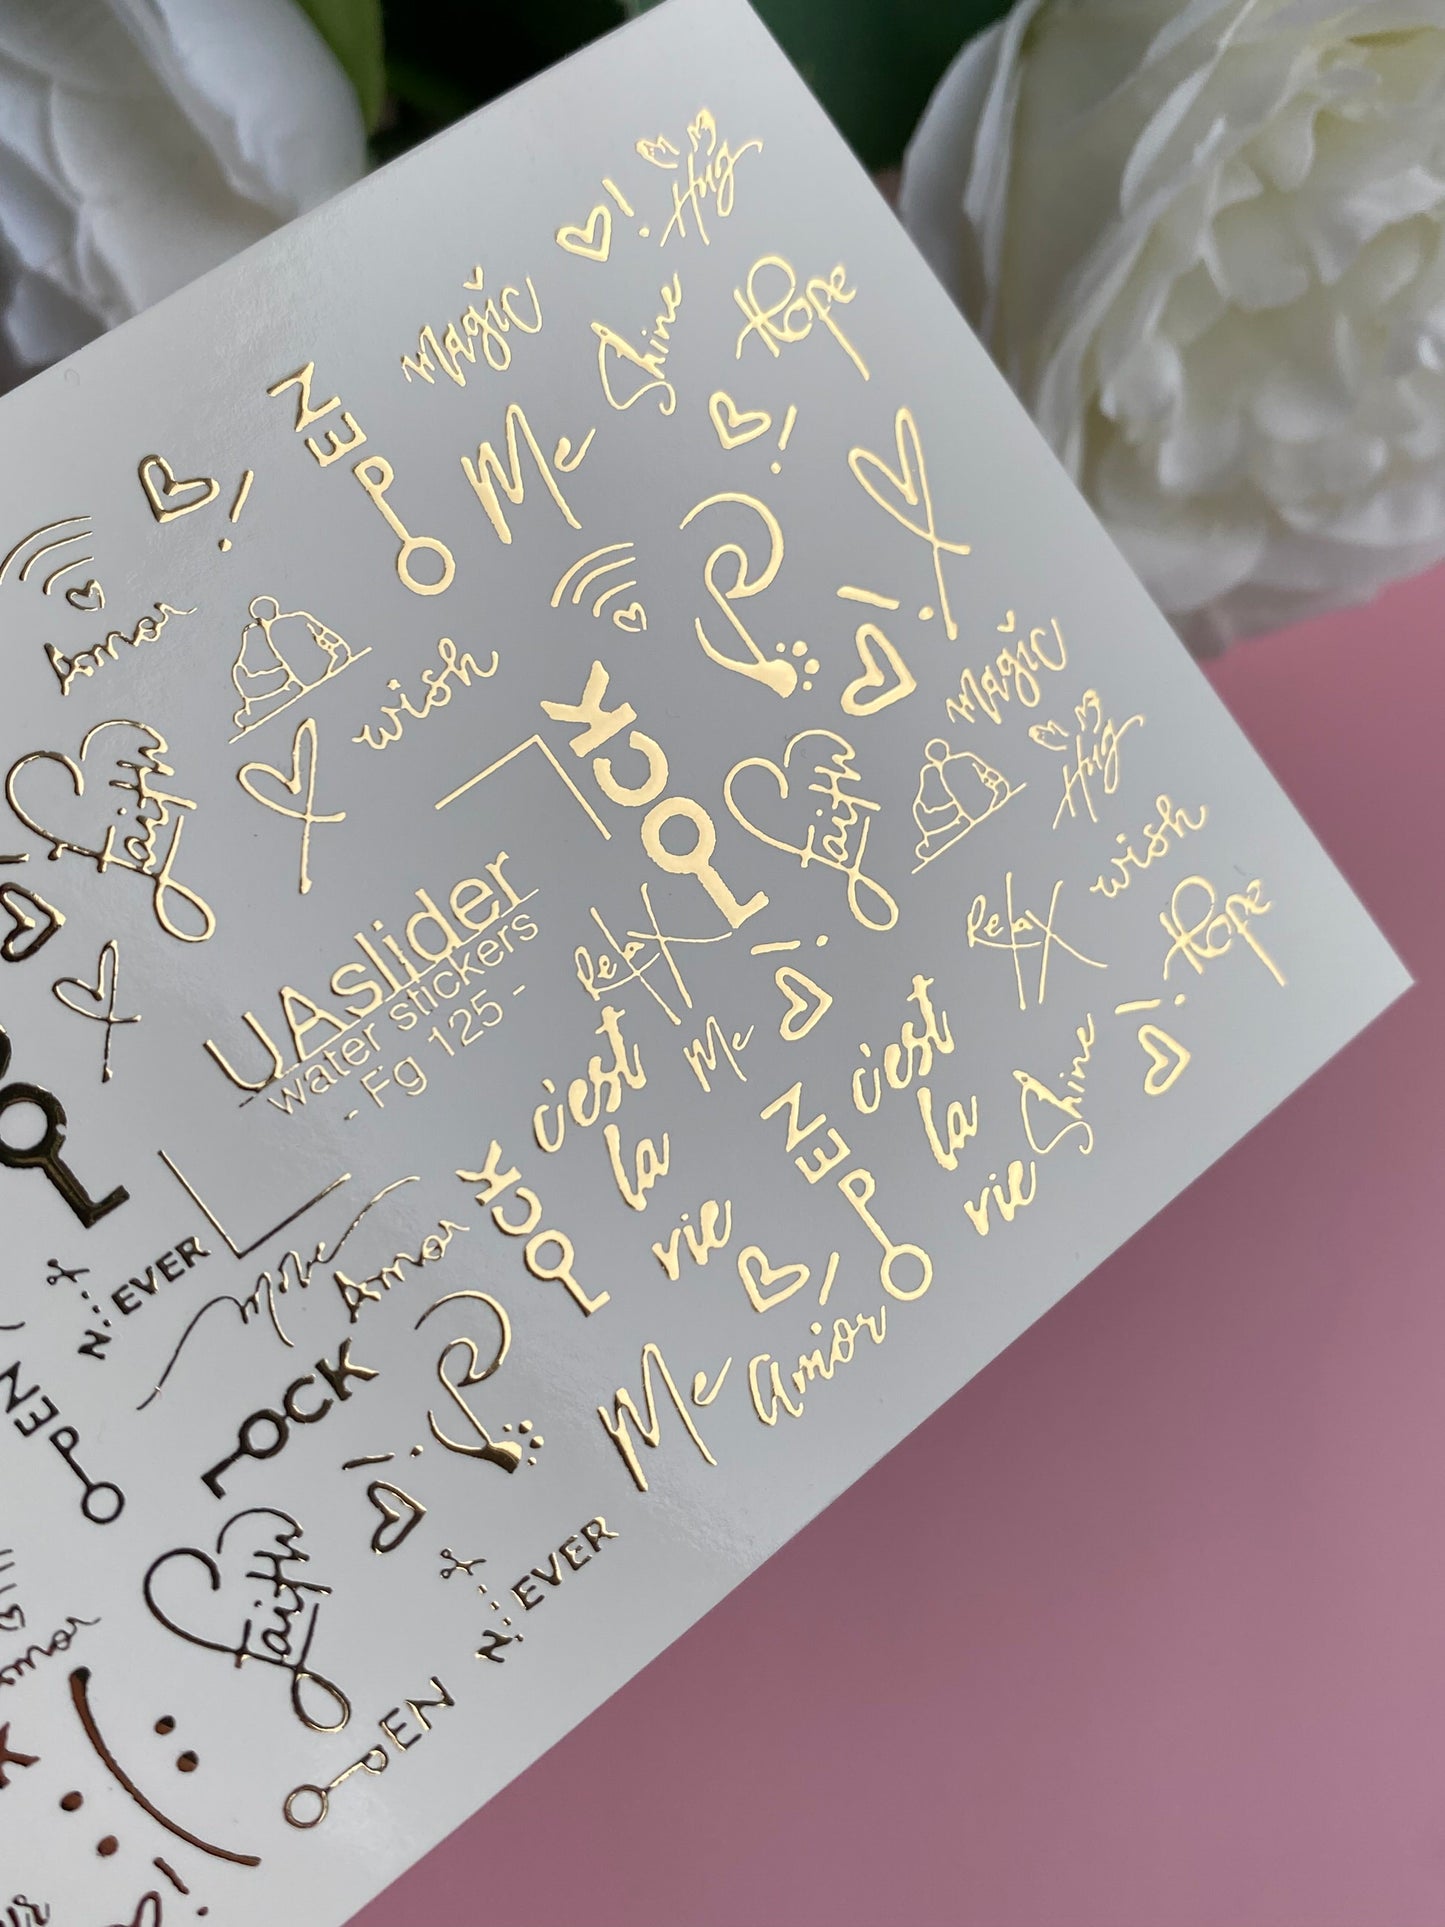 Hug
magic
Shine
Hope
OPEN
Me
Amor
wish
LOCK
magic
Faith
Faith
Hug
wish
Hope
UAslider
water stickers
- Fg 125 -
Relax
Relax
Me
c'est
la
vie
c'est
la
vie
Shine
OPEN
LOCK
N...EVER
Move
Amor
LOCK
OPEN
Me
Amor
Faith
N...EVER
OPEN
Amor